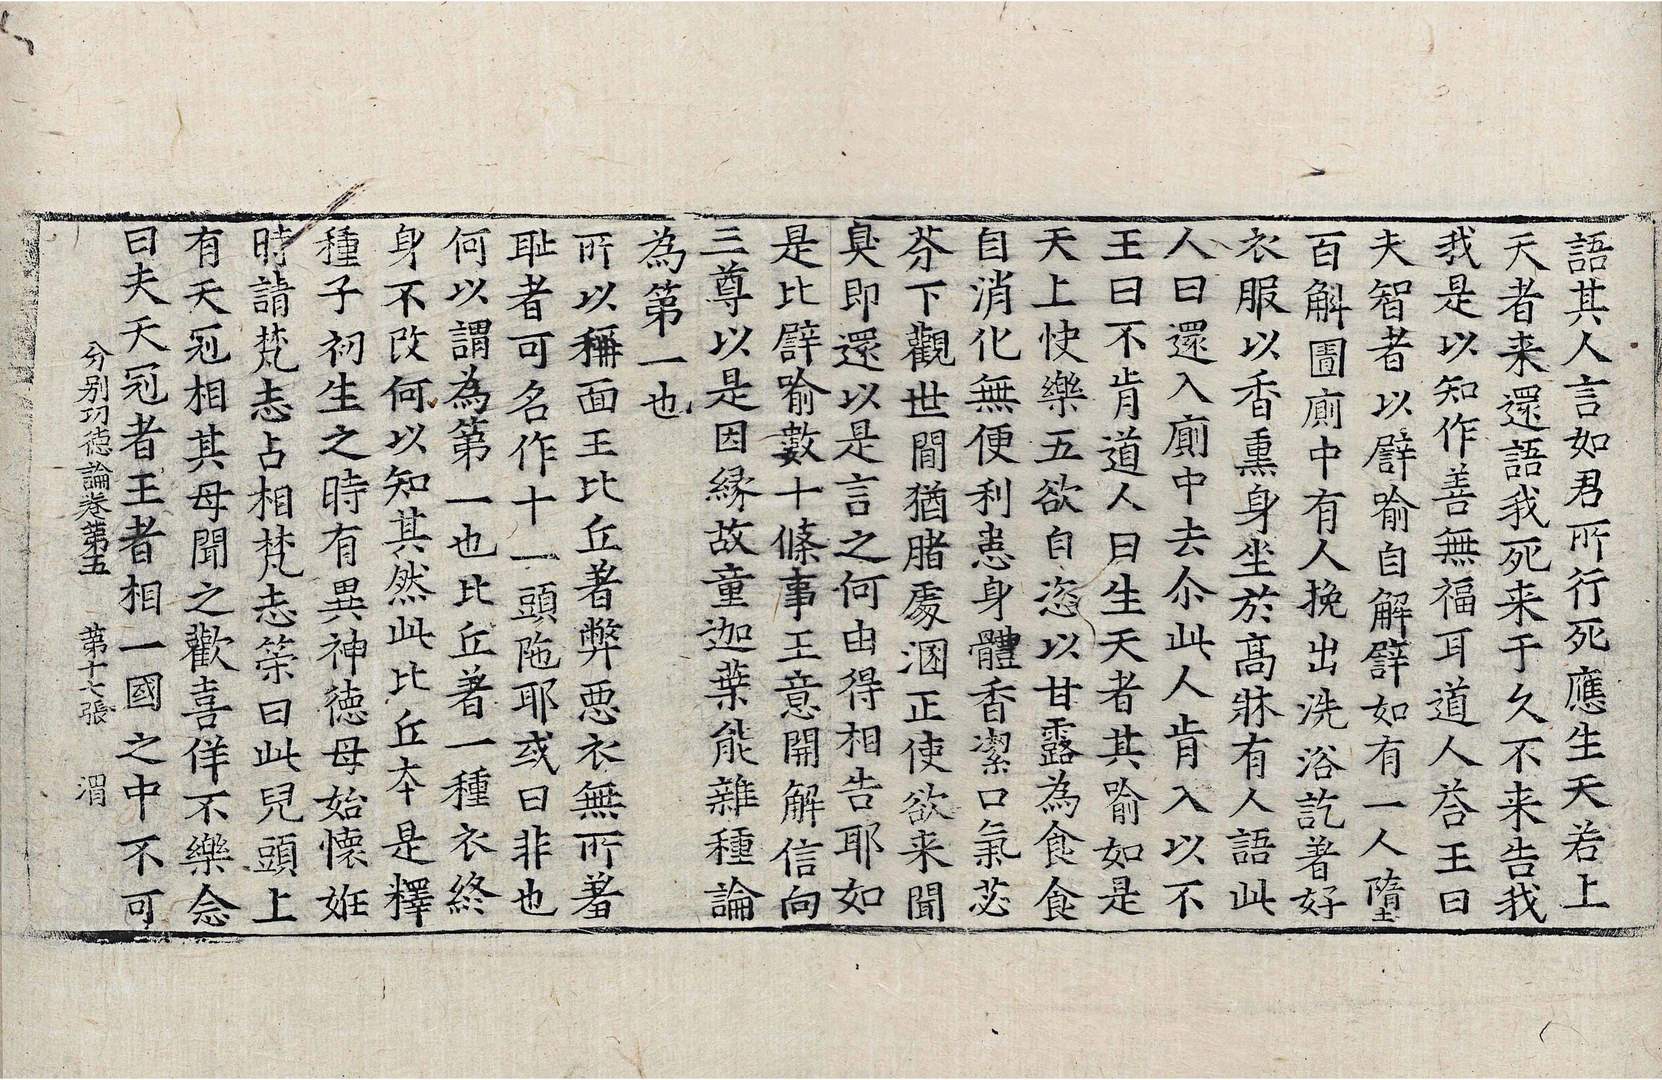 語其人言如君所行死應生天若上
天者来還語我死来于久不来告我
我是以知作善無福耳道人荅王曰
夫智者以譬喻自解譬如有一人墮
百斛圊廁中有人挽出洗浴訖著好
衣服以香熏身坐於髙牀有人語此
人曰還入廁中去尒此人肯入以不
王曰不肯道人曰生天者其喻如是
天上快樂五欲自恣以甘露為食食
自消化無便利患身體香潔口氣苾
芬下觀世間猶賭處溷正使欲来聞
臭即還以是言之何由得相告耶如
是比譬喻數十條事王意開解信向
三尊以是因緣故童迦葉能雜種論
為第一也
所以稱面王比丘著弊惡衣無所著
耻者可名作十一頭陁耶或曰非也
何以謂為第一也比丘著一種衣終
身不改何以知其然此比丘本是釋
種子初生之時有異神徳母始懷妊
時請梵志占相梵志荅曰此兒頭上
有天冠相其母聞之歡喜佯不樂念
曰夫天冠者王者相一國之中不可
分别功徳論卷第五 第十七張 渭